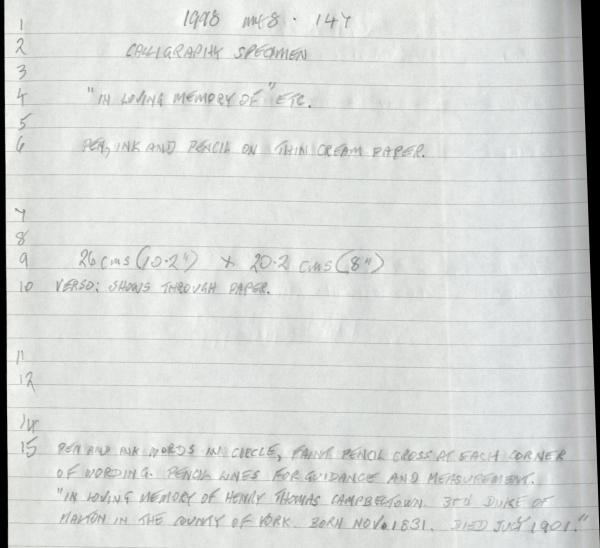 1 1998 MKS · 147
2 CALLIGRAPHY SPECIMEN
3
4 "IN LOVING MEMORY OF" ETC.
5
6 PEN, INK AND PENCIL ON THIN CREAM PAPER.
7
8
9 26 cms (10.2") x 20.2 cms (8")
10 VERSO: SHOWS THROUGH PAPER.
11
12
14
15 PEN AND INK WORDS IN CIRCLE, FAINT PENCIL CROSS AT EACH CORNER
OF WORDING. PENCIL LINES FOR GUIDANCE AND MEASUREMENT.
"IN LOVING MEMORY OF HENRY THOMAS CAMPBELTOWN. 3RD DUKE OF
MALTON IN THE COUNTY OF YORK. BORN NOV. 1831. DIED JULY 1901."